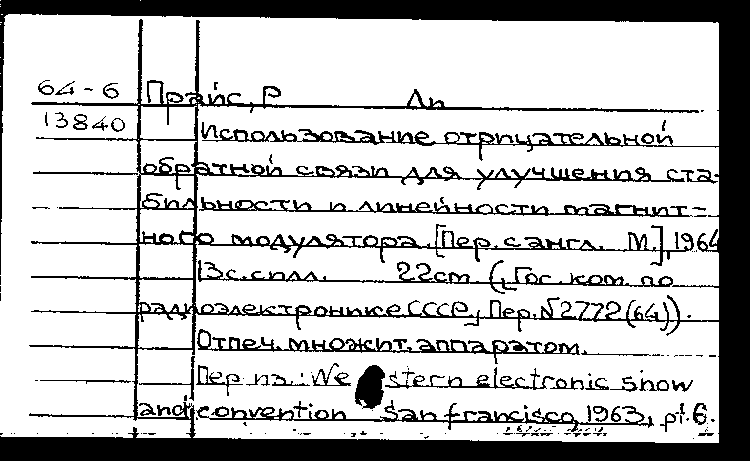 64-6 Прайс, Р Лп
13840 Использование отрицательной
обратной связи для улучшения ста-
бильности и линейности магнит-
ного модулятора. [Пер. с англ. М.], 1964
13 с. с илл. 22 см. (Гос. ком. по
радиоэлектронике СССР, Пер. № 2772 (64)).
Отпеч. множит. аппаратом.
Пер из.: Western electronic show
and convention San francisco, 1963, pt. 6.